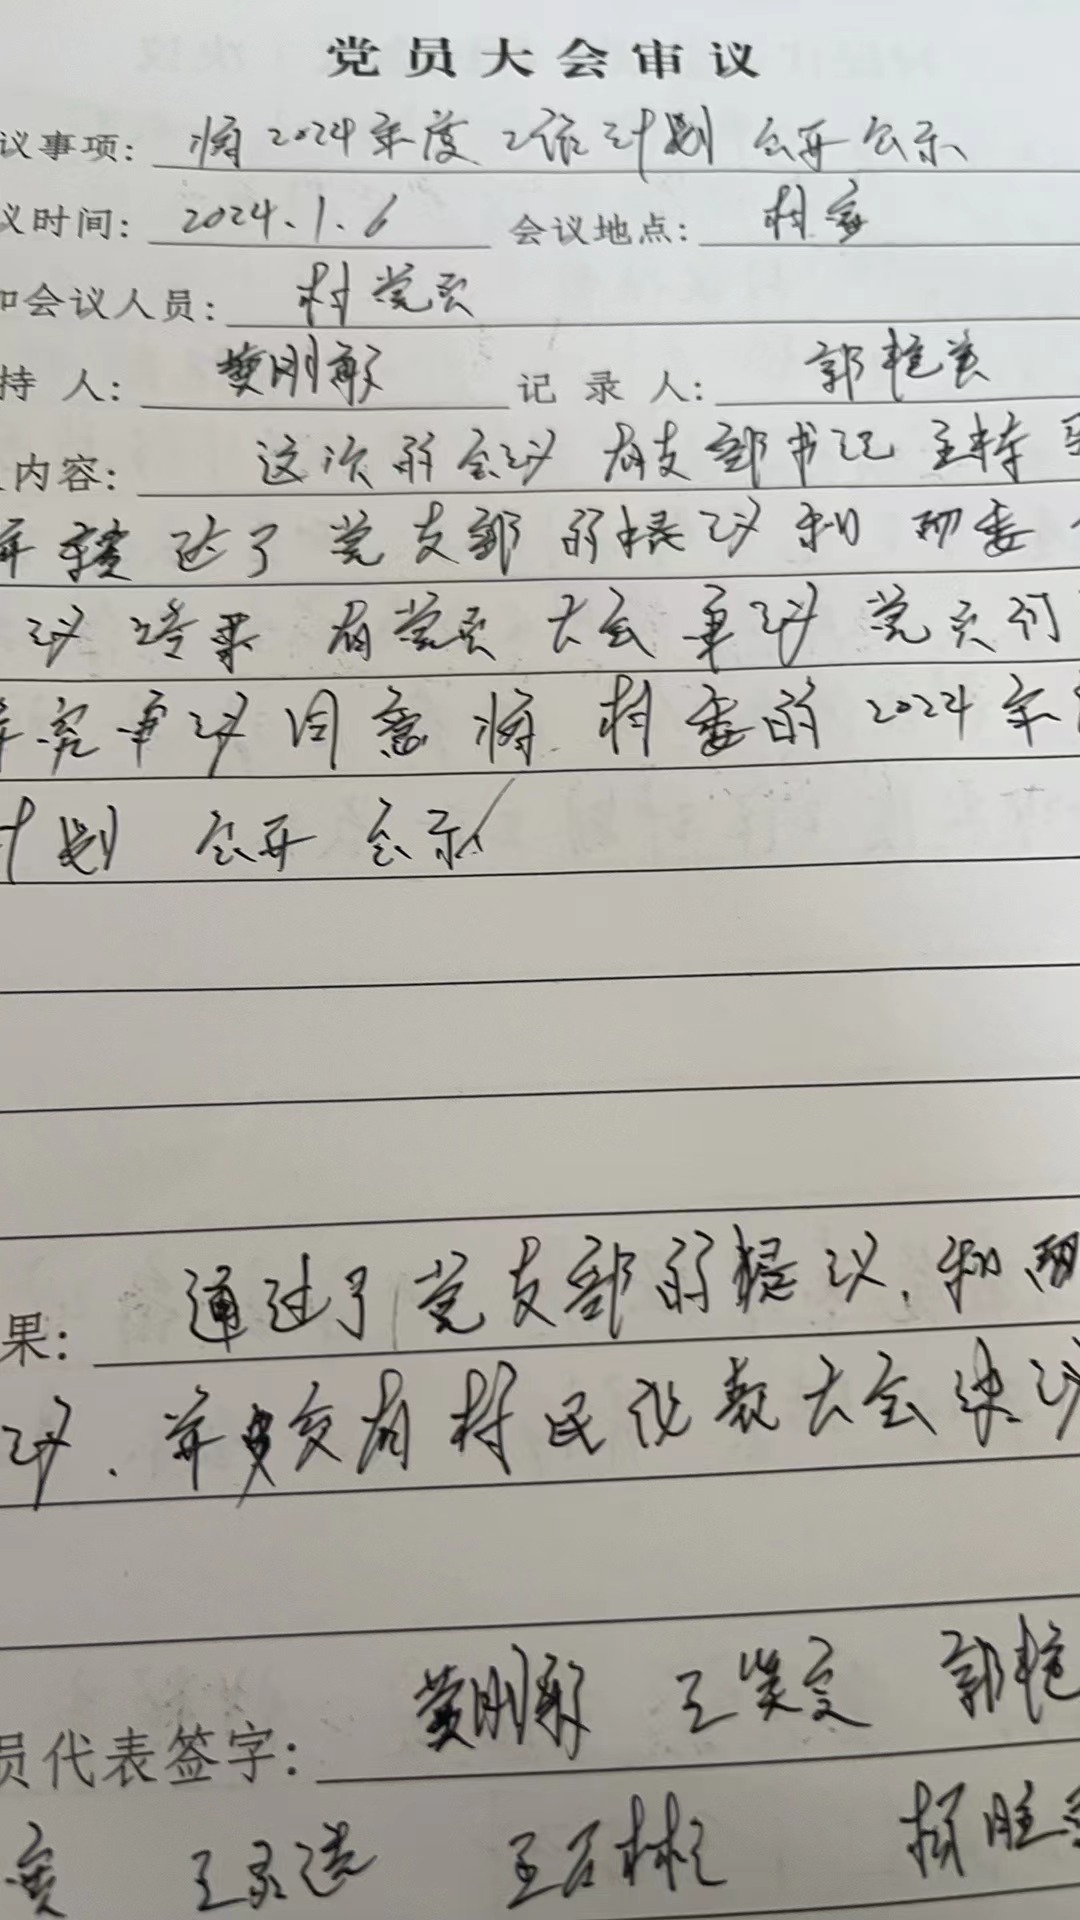 党员大会审议
议事项: 将2024年度工作计划公开公示
议时间: 2024.1.6 会议地点: 村室
加会议人员: 村党员
持 人: 黄刚敏 记 录 人: 郭艳
内容: 这次的会议有支部书记主持
并转达了党支部的提议和两委
议结果有党员大会审议党员们
审议同意将村委的2024年
计划 公开公示
果: 通过了党支部的提议.和两
议.并交有村民代表大会决议
员代表签字: 黄刚敏 王 郭艳
王 王